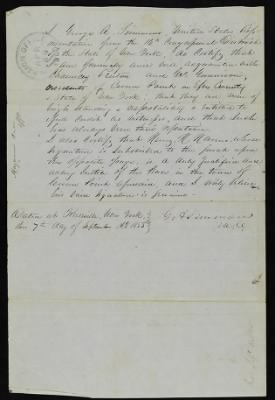 I George A. Simmons United States Rep-
resentative from the 16th Congressional District
of the State of New York, do certify that
I am personally and well acquainted with
Chauncey
residents of Crown Point in Essex County
& State of New York that they are men of
high standing & respectability & entitled to
full credit as witnesses, and that such
has always been their reputation.
I also certify that Henry R. Harris whose
signature is subscribed to the jurat upon
the opposite page, is a duly qualified and
acting Justice of the Peace in the town of
Crown Point aforesaid, and I verily believe
his said signature is genuine.
Dated at Keeseville, New York,
this 7th day of September AD. 1855
G A Simmons
M.C.